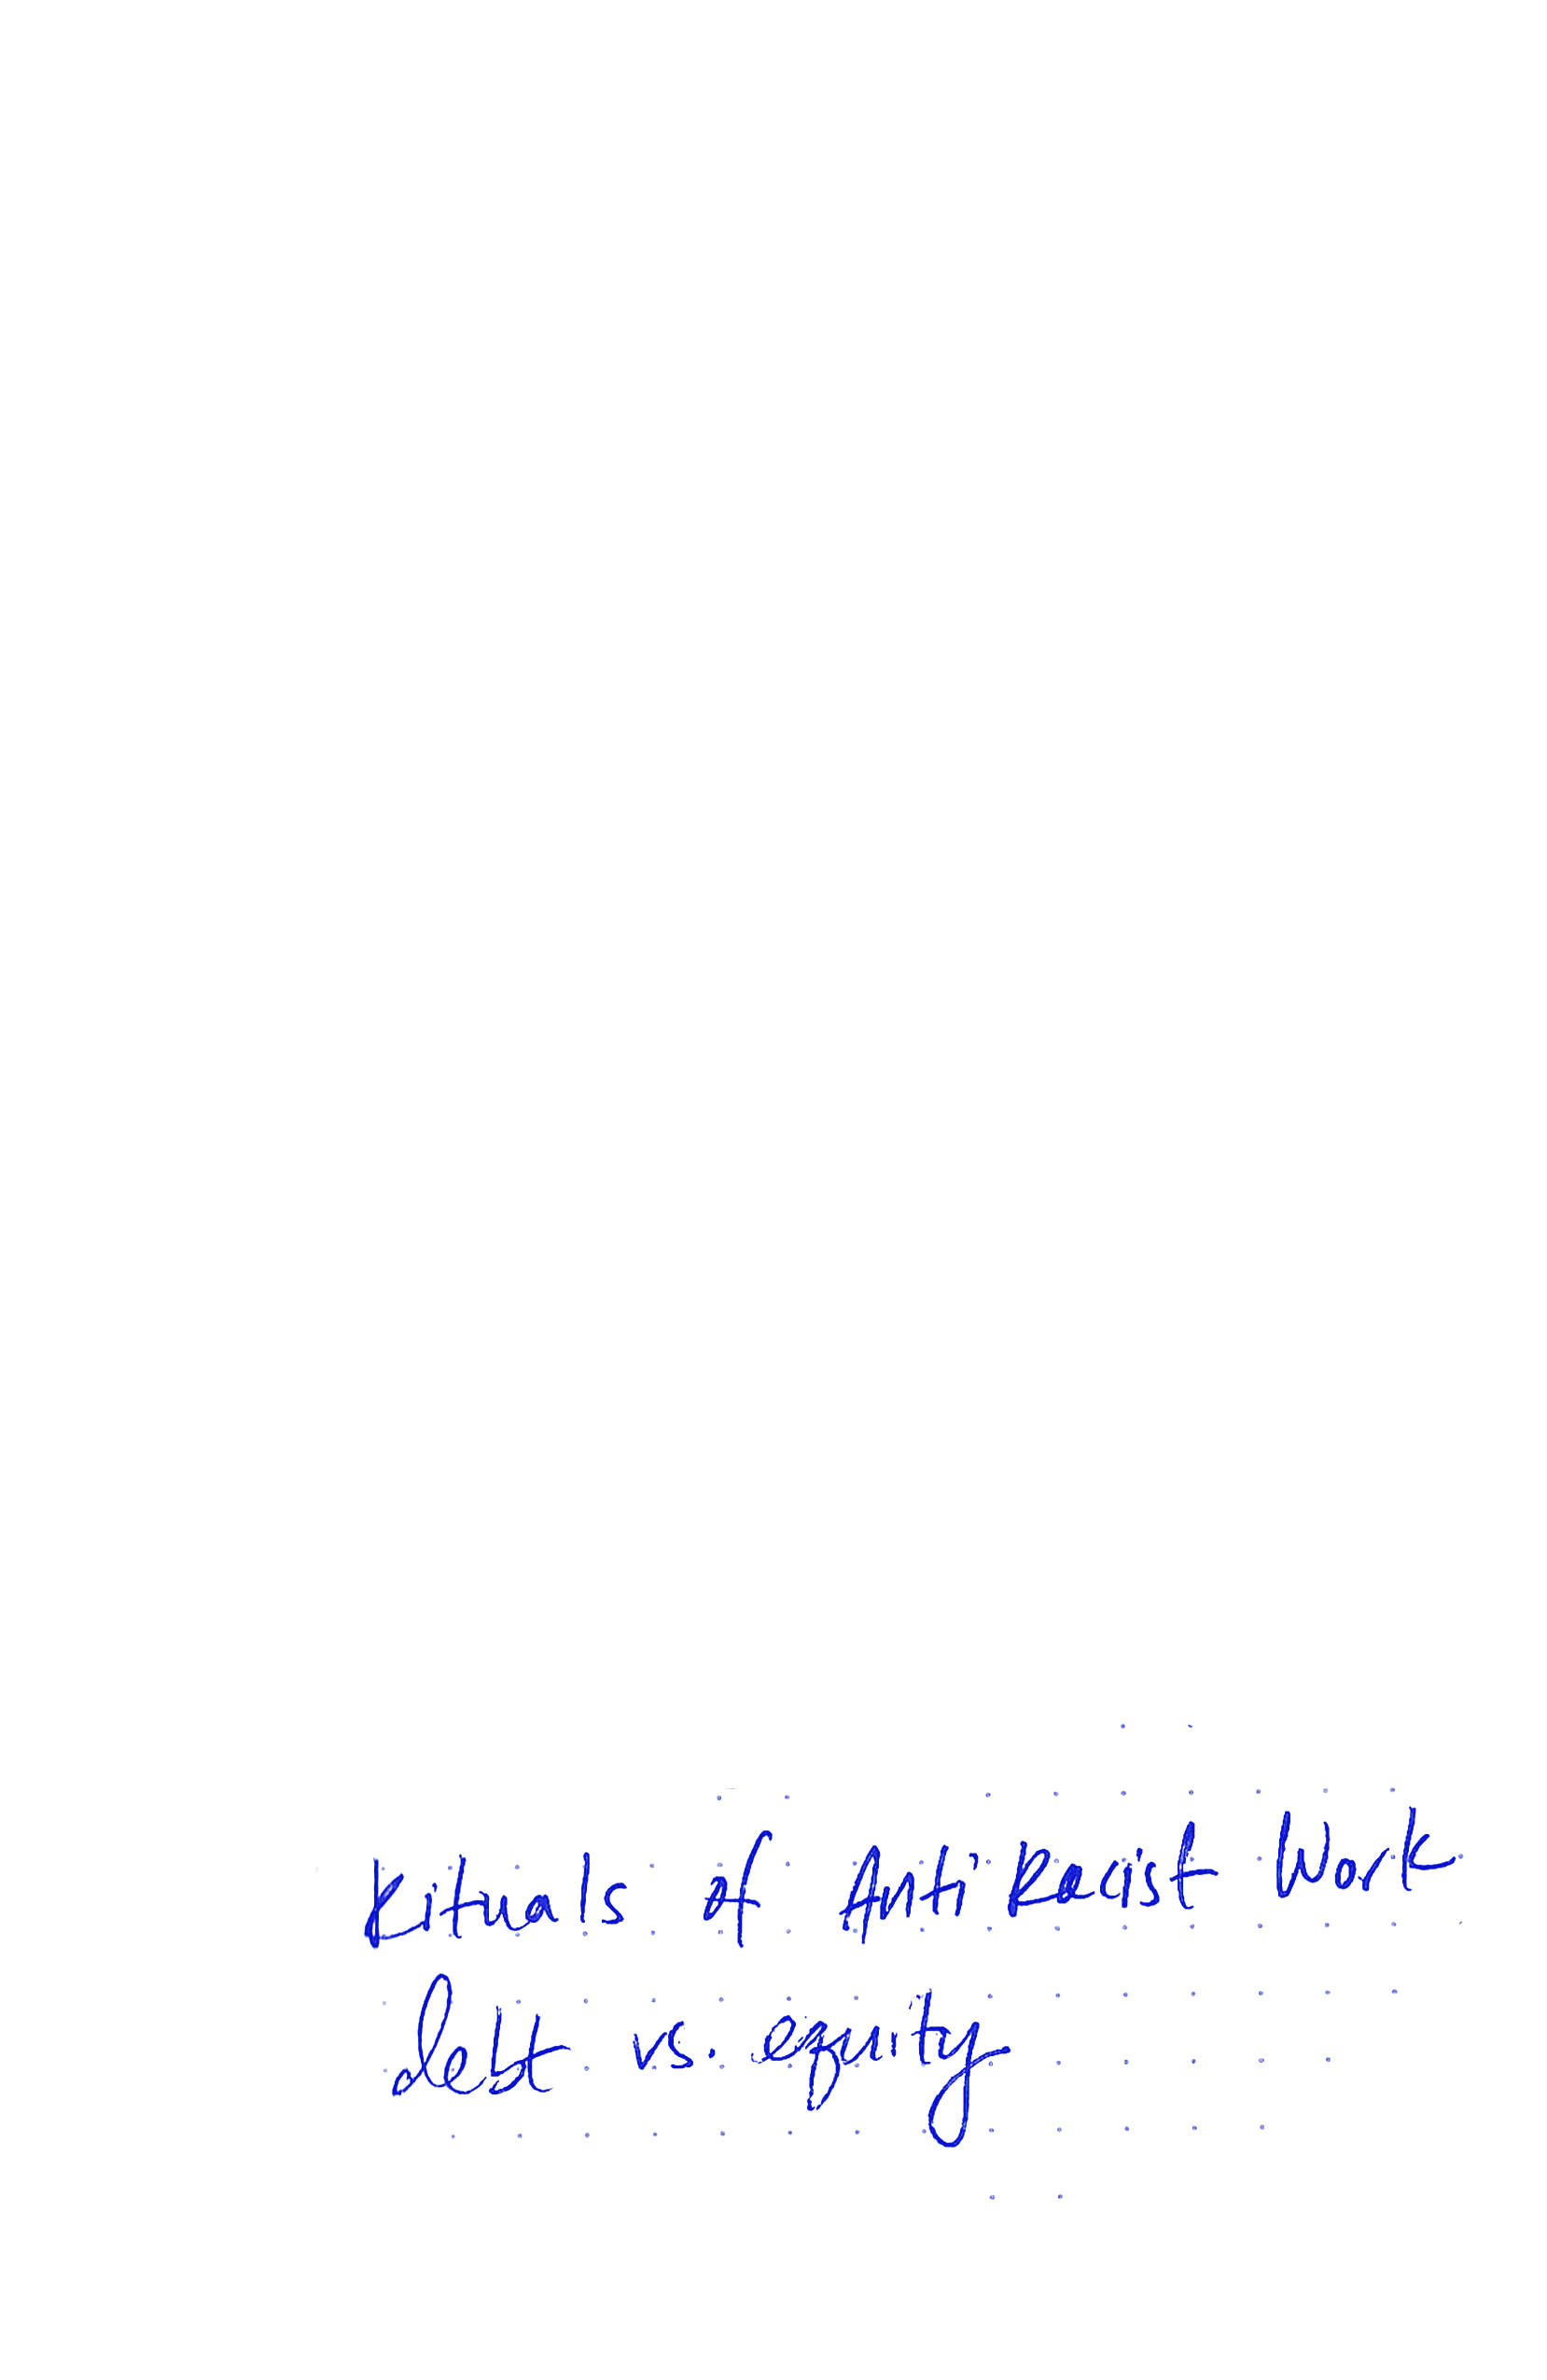 Rituals of Anti Racist Work
debt vs. equity